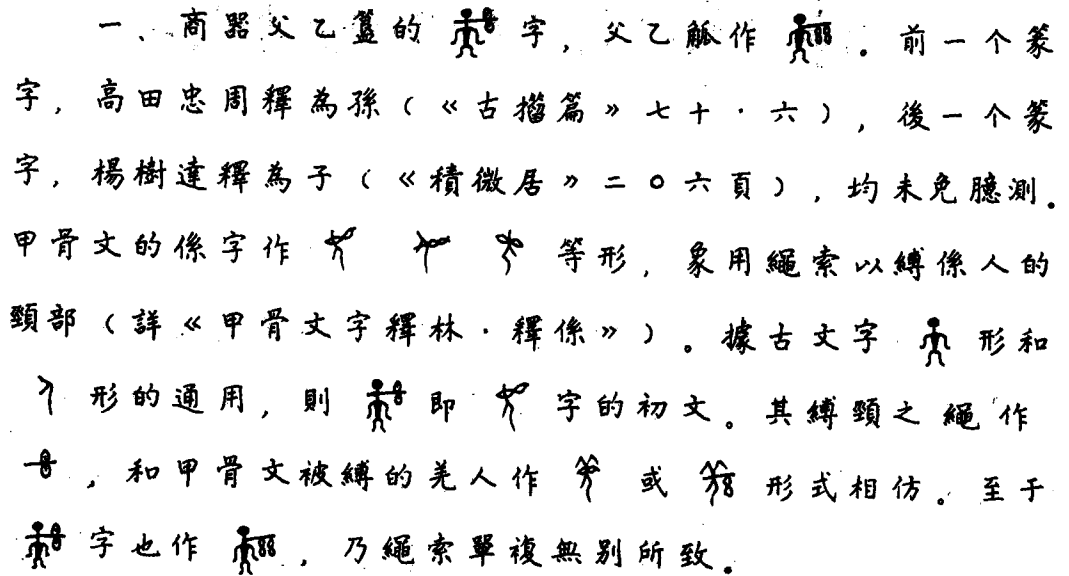 一、商器父乙簋的字，父乙觚作。前一个篆
字，高田忠周釋為孫（《古籀篇》七十·六），後一个篆
字，楊樹達釋為子（《積微居》二〇六頁），均未免臆測。
甲骨文的係字作 等形，象用繩索以縛係人的
頸部（詳《甲骨文字釋林·釋係》）。據古文字 形和
形的通用，則 即 字的初文。其縛頸之繩作
，和甲骨文被縛的羌人作 或 形式相仿。至于
字也作 ，乃繩索單複無別所致。